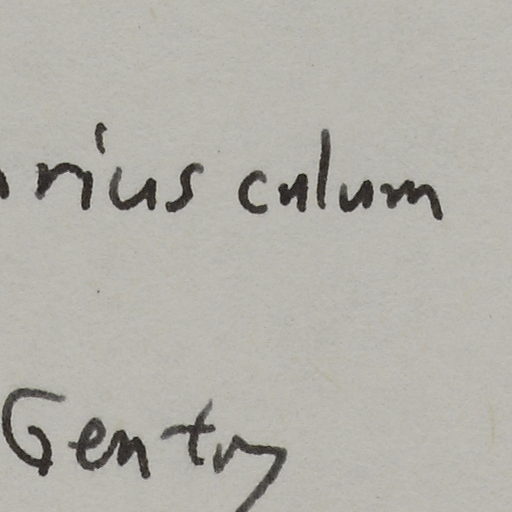 rius culum
Gentry